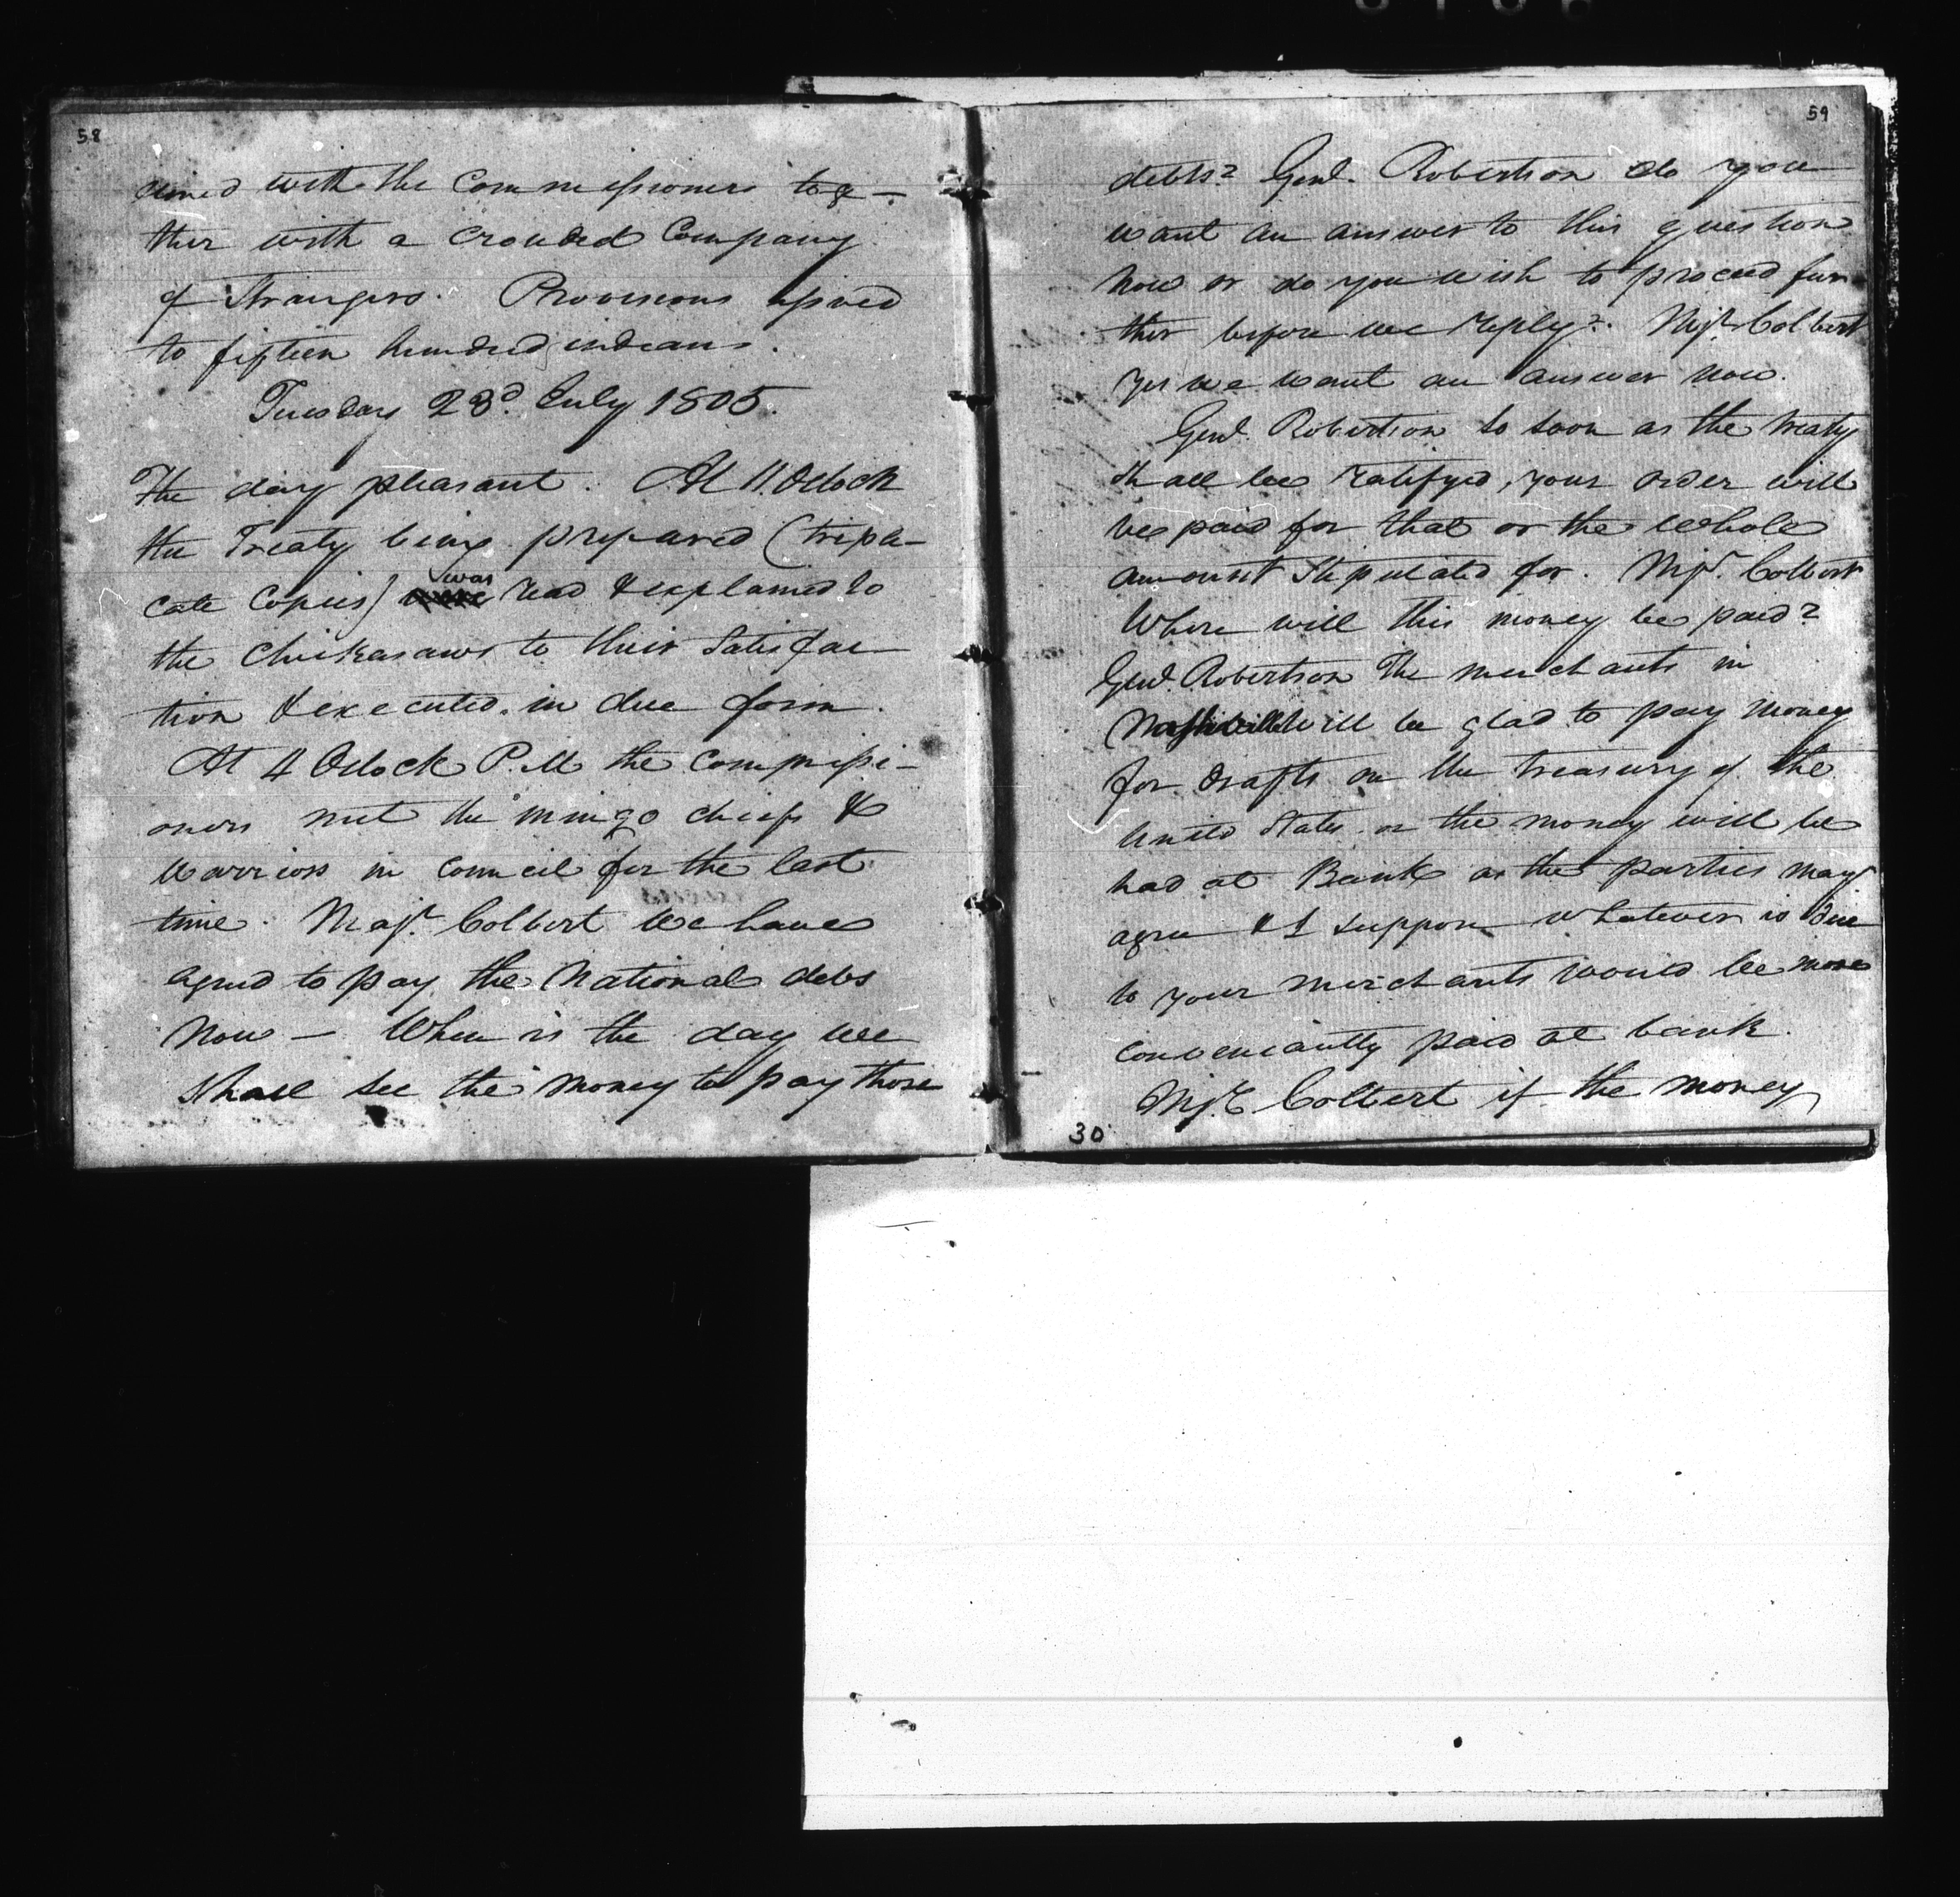 58
dined with the Commissioners toge-
ther with a crouded Company
of Strangers. Provisions issued
to fifteen hundred indians.
Tuesday 23d. July 1805.
The day pleasant. At 11. Oclock
the Treaty being prepared (tripli-
cate Copies) was read & explained to
the Chickasaws to their Satisfac-
tion & executed in due form.
At 4 Oclock P.M the commissi-
oners met the mingo chiefs &
warriors in Council for the last
time. Majr. Colbert we have
agreed to pay the National debs
Now — When is the day we
shall see the money to pay those
59
debts? Genl. Robertson do you
want an answer to this question
now or do you wish to proceed fur
ther before we reply? Mjr. Colbert
yes we want an answer now.
Genl. Robertson so soon as the treaty
shall be ratifyed, your order will
be paid for that or the whole
amount stipulated for. Mjr. Colbert
Where will this money be paid?
Genl. Robertson The merchants in
Nashville will be glad to pay money
for drafts on the treasury of the
United States or the money will be
had at Bank as the parties may
agree & I suppose whatever is due
to your merchants would be more
conveniantly paid at bank.
Mjr Colbert if the money
30